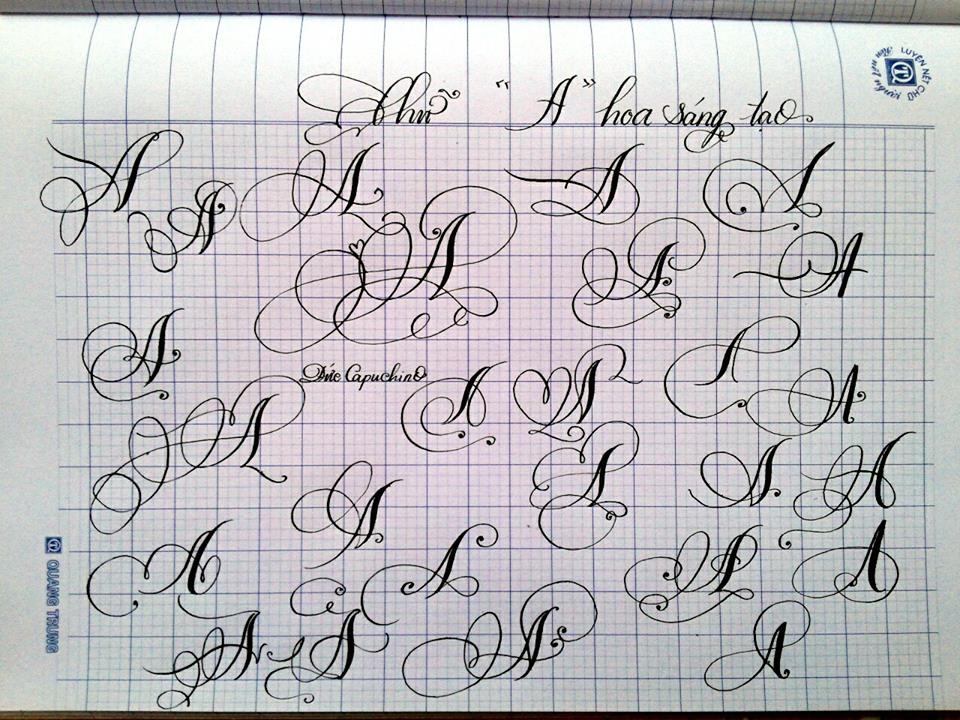 LUYỆN NÉT CHỮ
Chữ "A" hoa sáng tạo.
A A A A A
A A A
A A
Đức Capuchino
A A A
A A A A
A
A A A A
QUANG TRUNG
A A A A